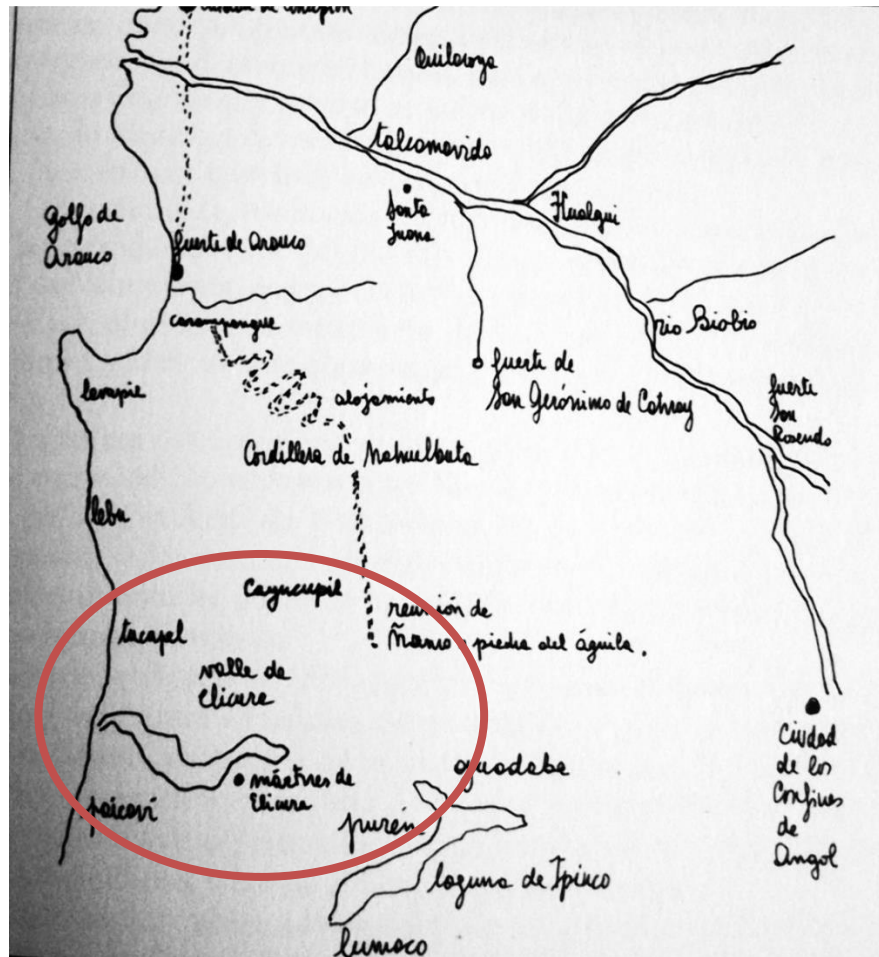 Quilacoya
talcamavida
Santa
Juana
Hualqui
Golfo de
Arauco
fuerte de Arauco
carampangue
rio Biobio
lavapie
alojamiento
fuerte de
San Gerónimo de Catiray
fuerte
San
Rosendo
Cordillera de Nahuelbuta
lebu
Cayucupil
reunión de
Ñanco y piedra del águila.
tucapel
valle de
Elicura
Ciudad
de los
Confines
de
Angol
mártires de
Elicura
paicaví
guadaba
purén
laguna de Ipinco
lumaco